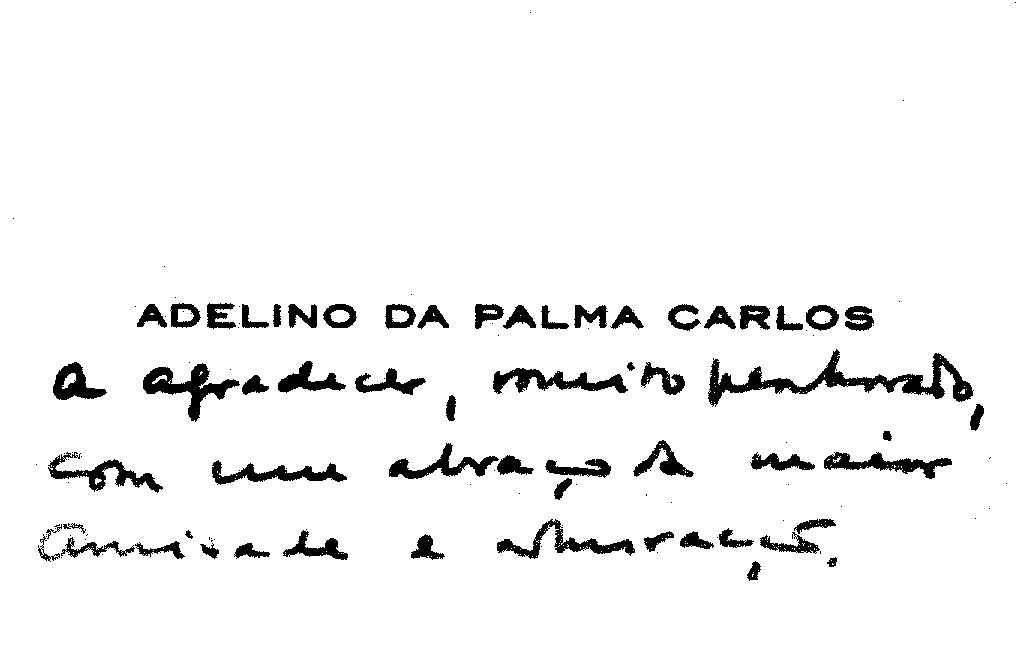 ADELINO DA PALMA CARLOS
a agradecer, muito penhorado,
com um abraço da maior
amizade e admiração.